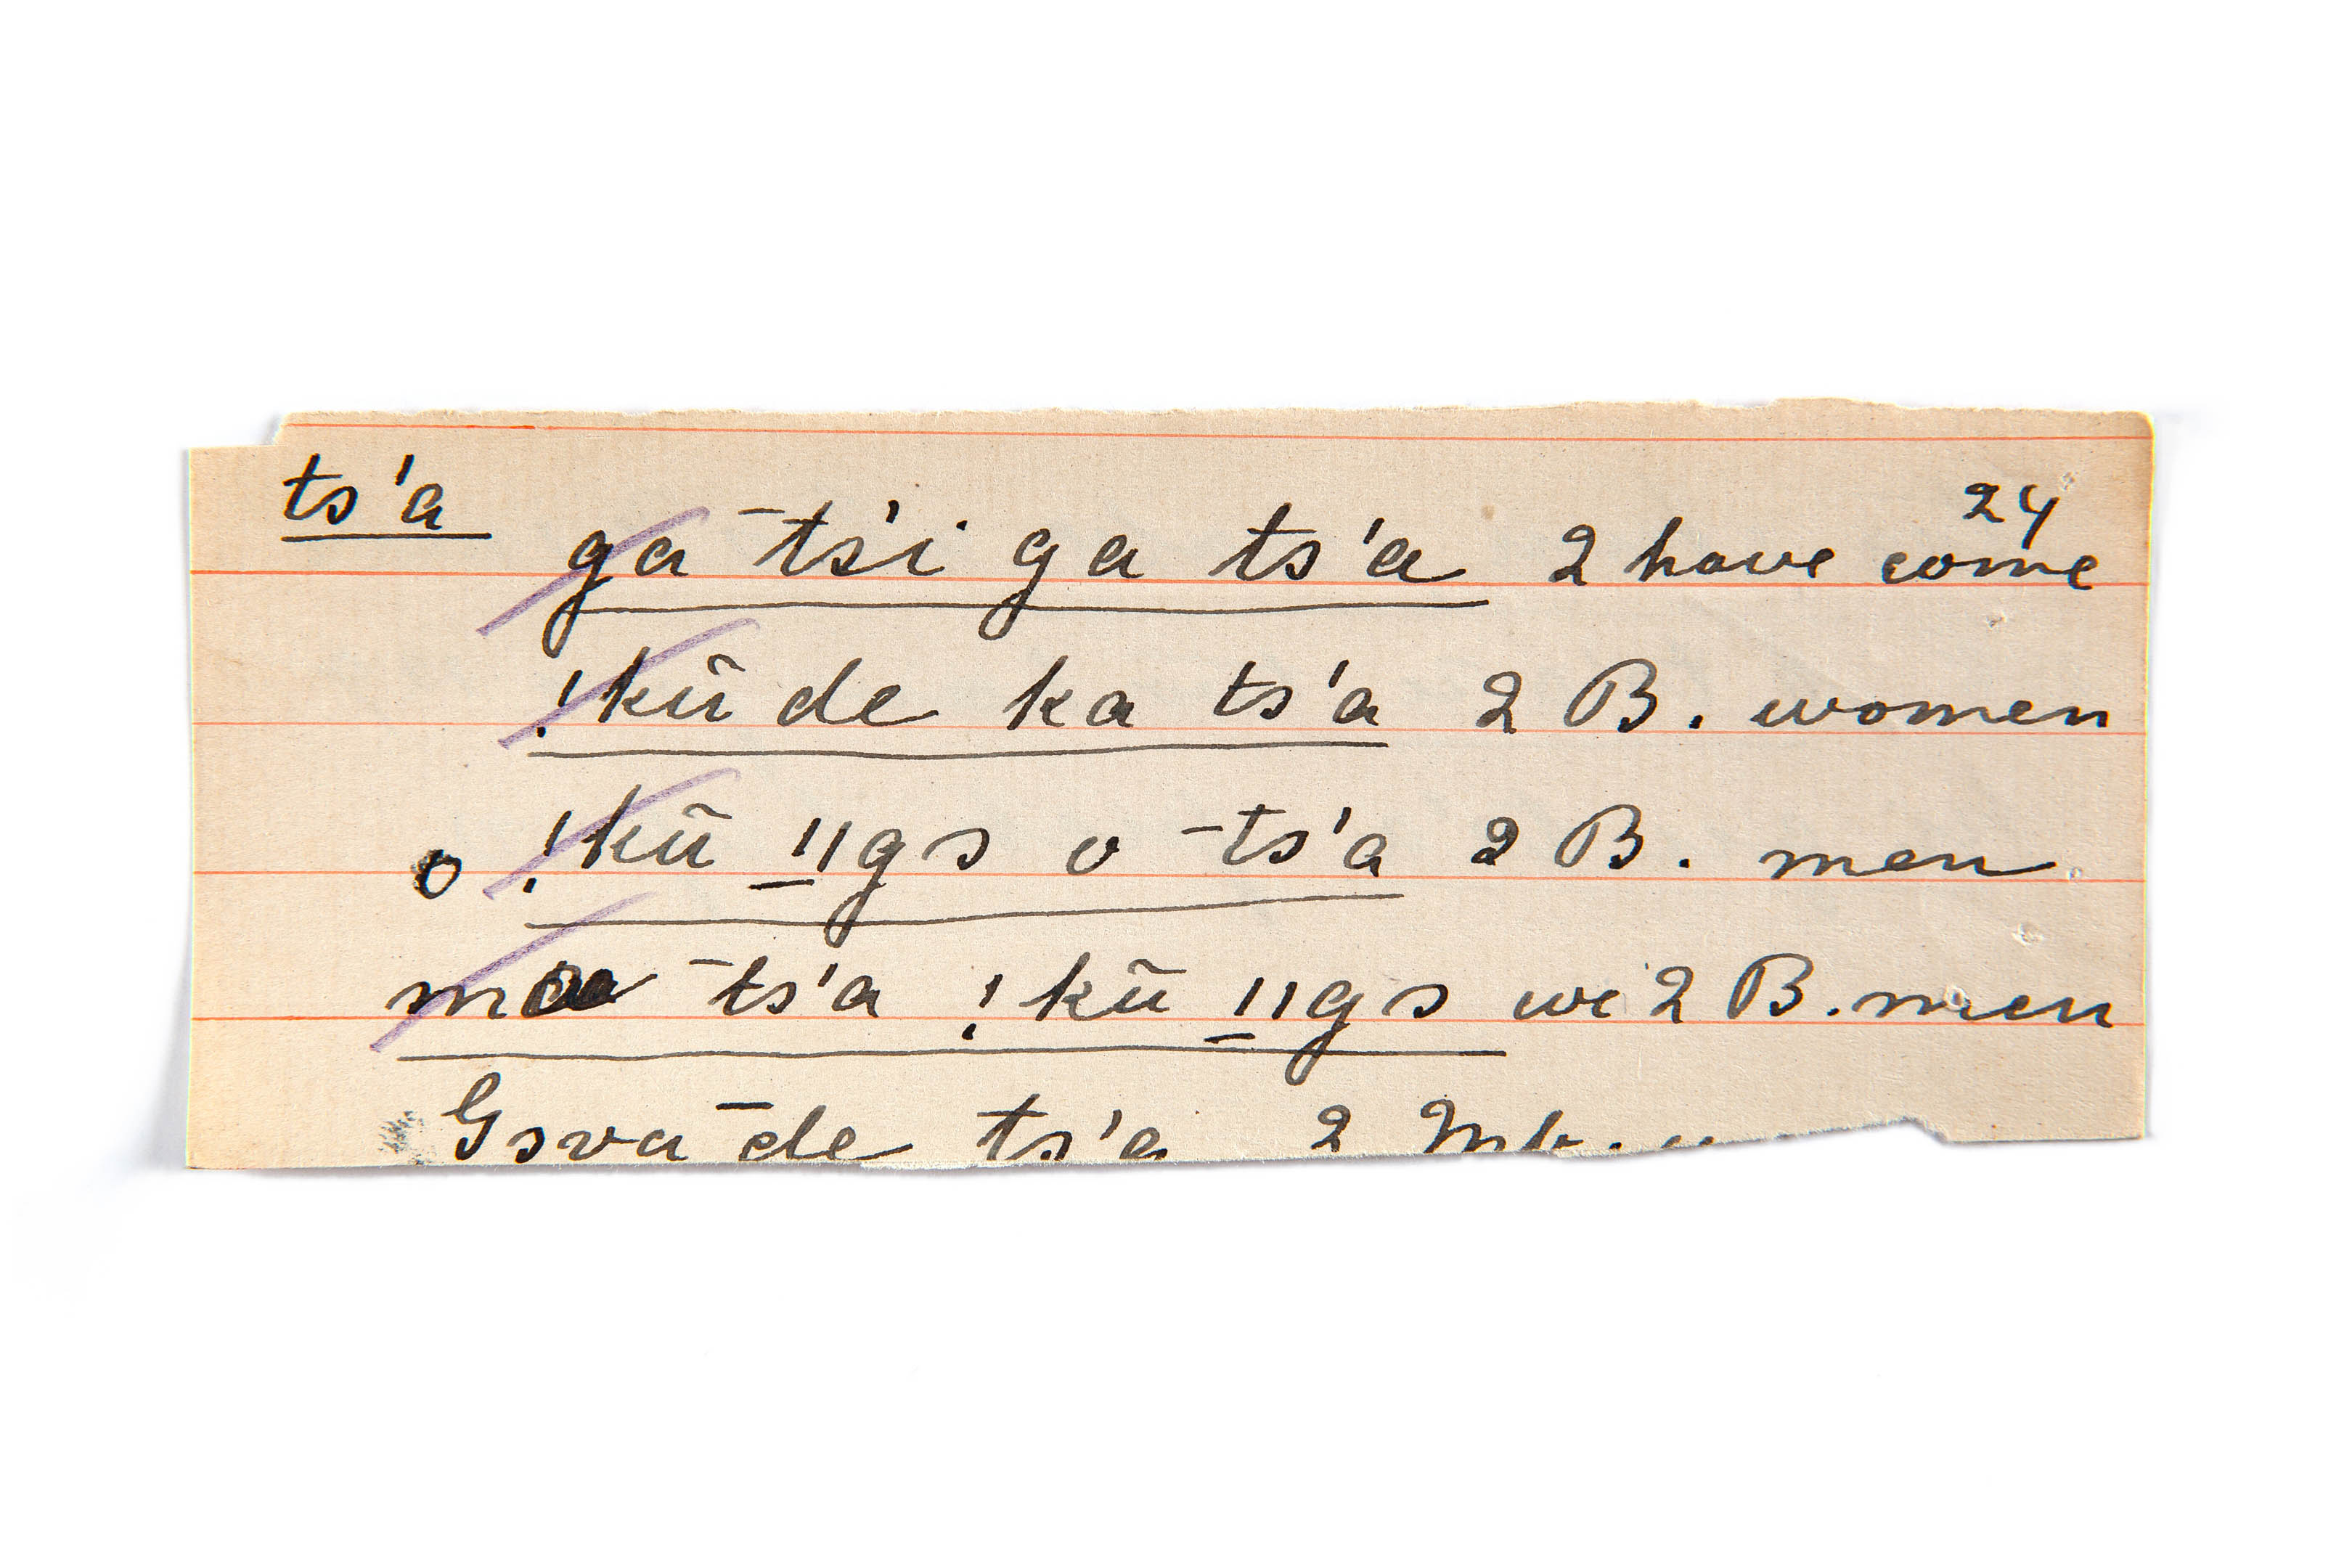 ts'a
24
ga ‾ts'i ga ts'a 2 have come
!kũ de ka ts'a 2 B. women
o !kũ _||gs o ‾ts'a 2 B. men
‾ts'a !kũ _||gs we 2 B. men
Gsva ‾de ts'a 2